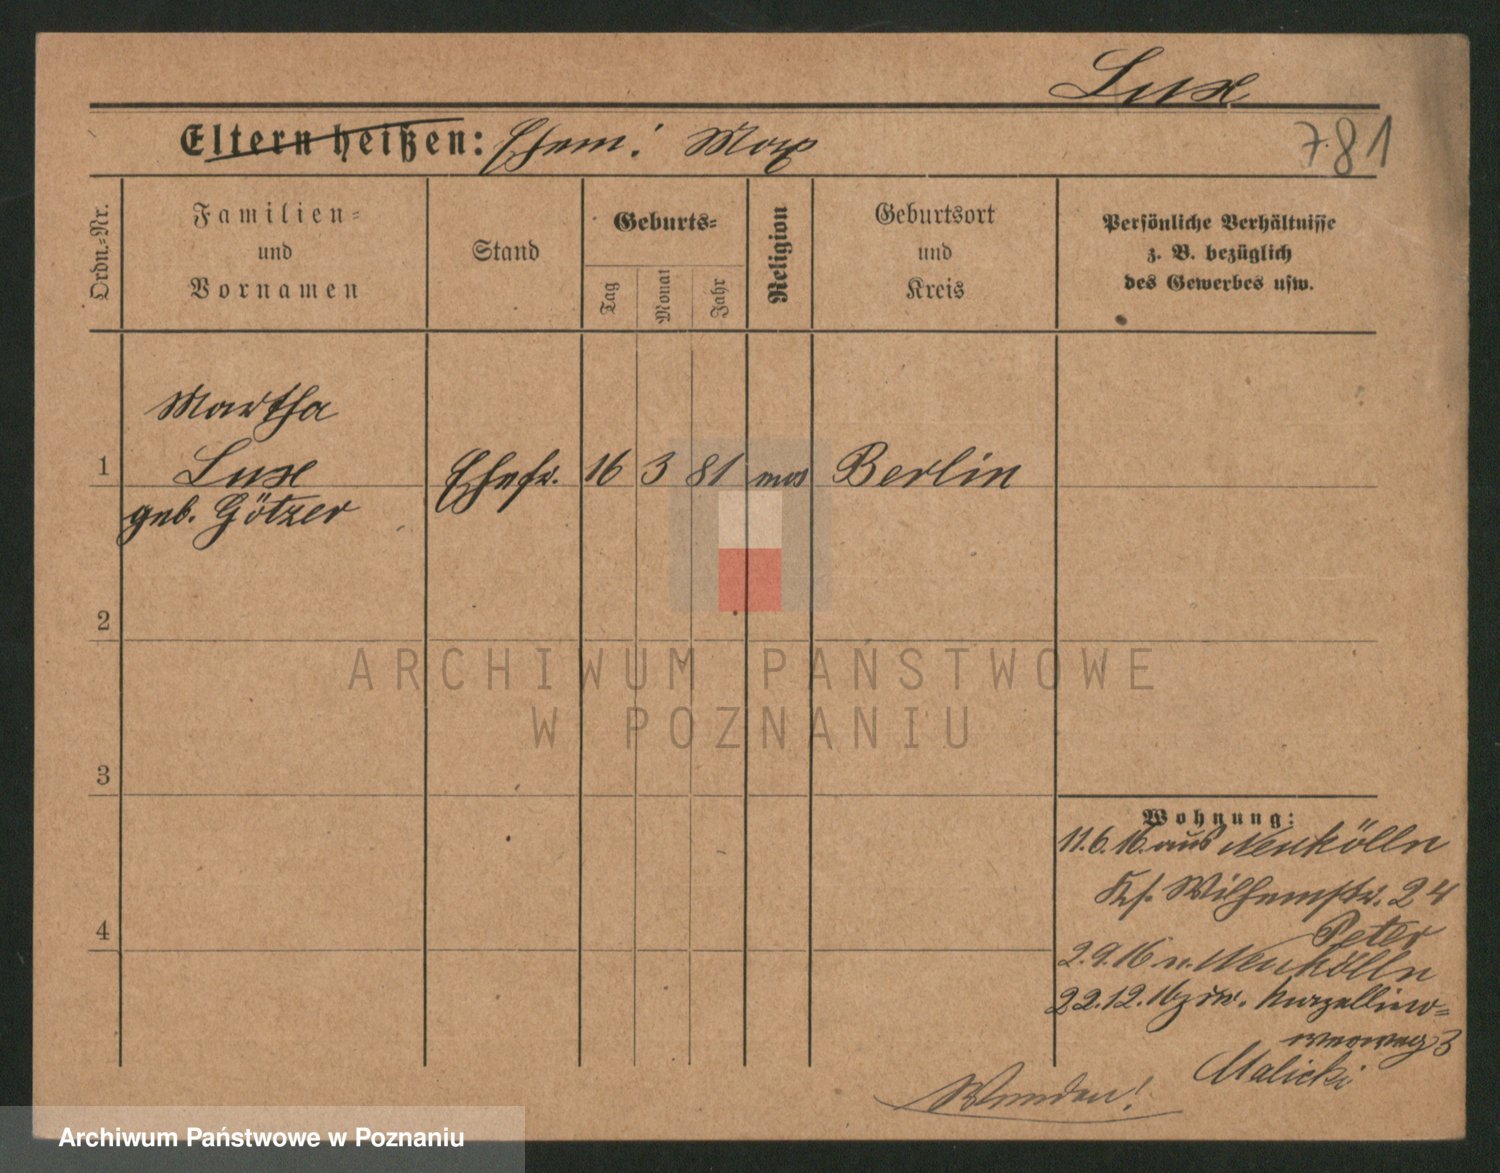 Lux
Eltern heißen: Ehem: Max
781
Ordn.-Nr.
Familien-
und
Vornamen
Stand
Geburts-
Tag
Monat
Jahr
Religion
Geburtsort
und
Kreis
Persönliche Verhältnisse
z. B. bezüglich
des Gewerbes usw.
Martha
1 Lux Ehefr. 16 3 81 mos Berlin
geb. Götzer
2
ARCHIWUM PAŃSTWOWE
W POZNANIU
3
Wohnung:
11.6.16. aus Neukölln
Ks. Wilhemstr. 24
Peter
4
2.9.16 n. Neukölln
22.12.16 zur.
3
Malicki
Wenden!
Archiwum Państwowe w Poznaniu